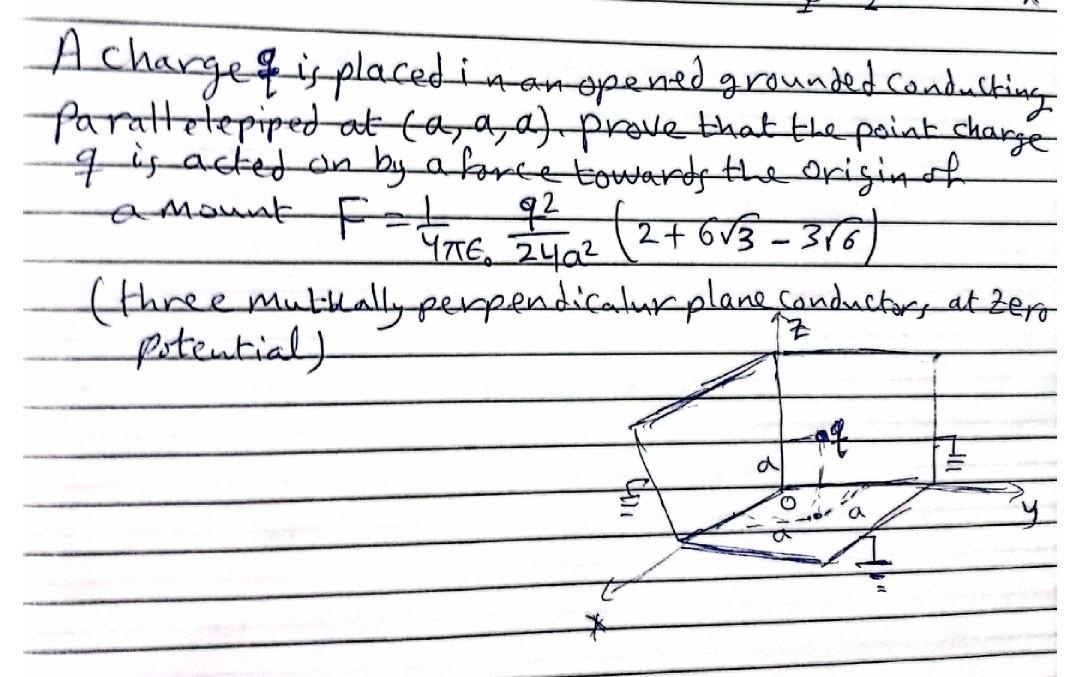 A charge q is placed in an opened grounded conducting
Parallelepiped at (a, a, a). prove that the point charge
q is acted on by a force towards the origin of
a mount F = 1/4πϵ₀ q²/24a² (2 + 6√3 - 3√6)
(three mutually perpendicalur plane conductors at zero
potential)
z
q
a
O
a
a
y
x